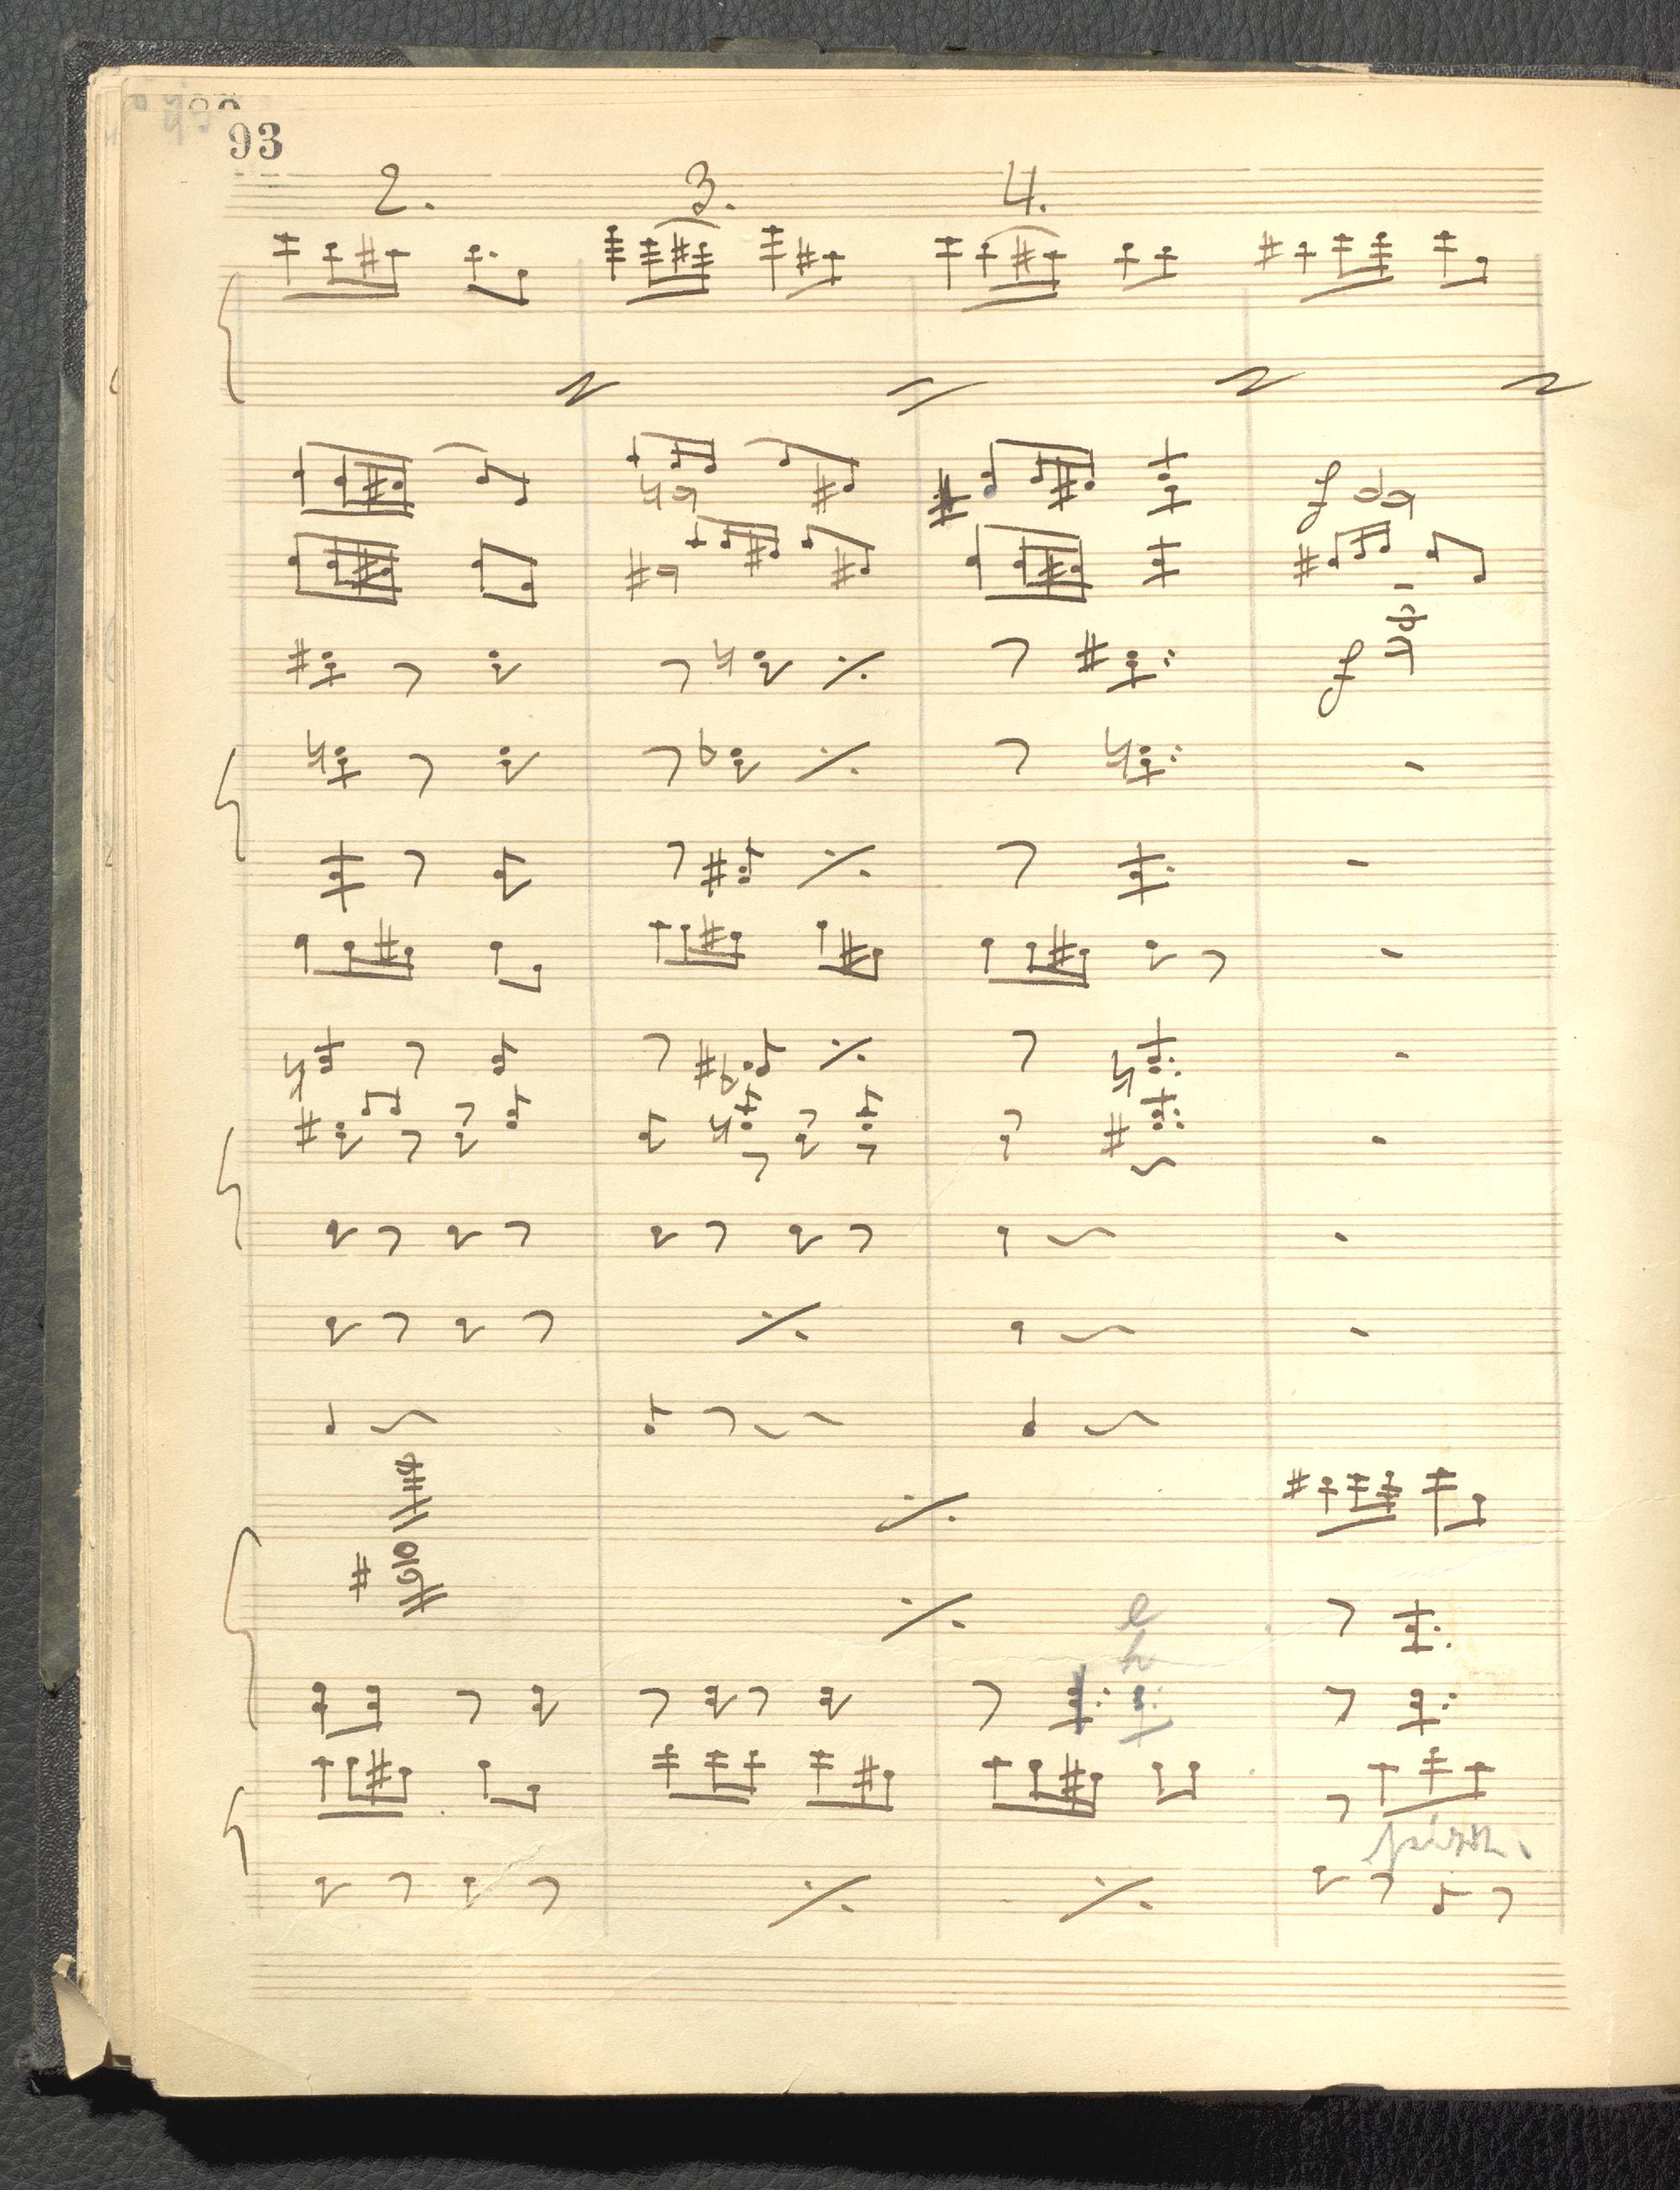 93
2. 3. 4.
f
f
e
h